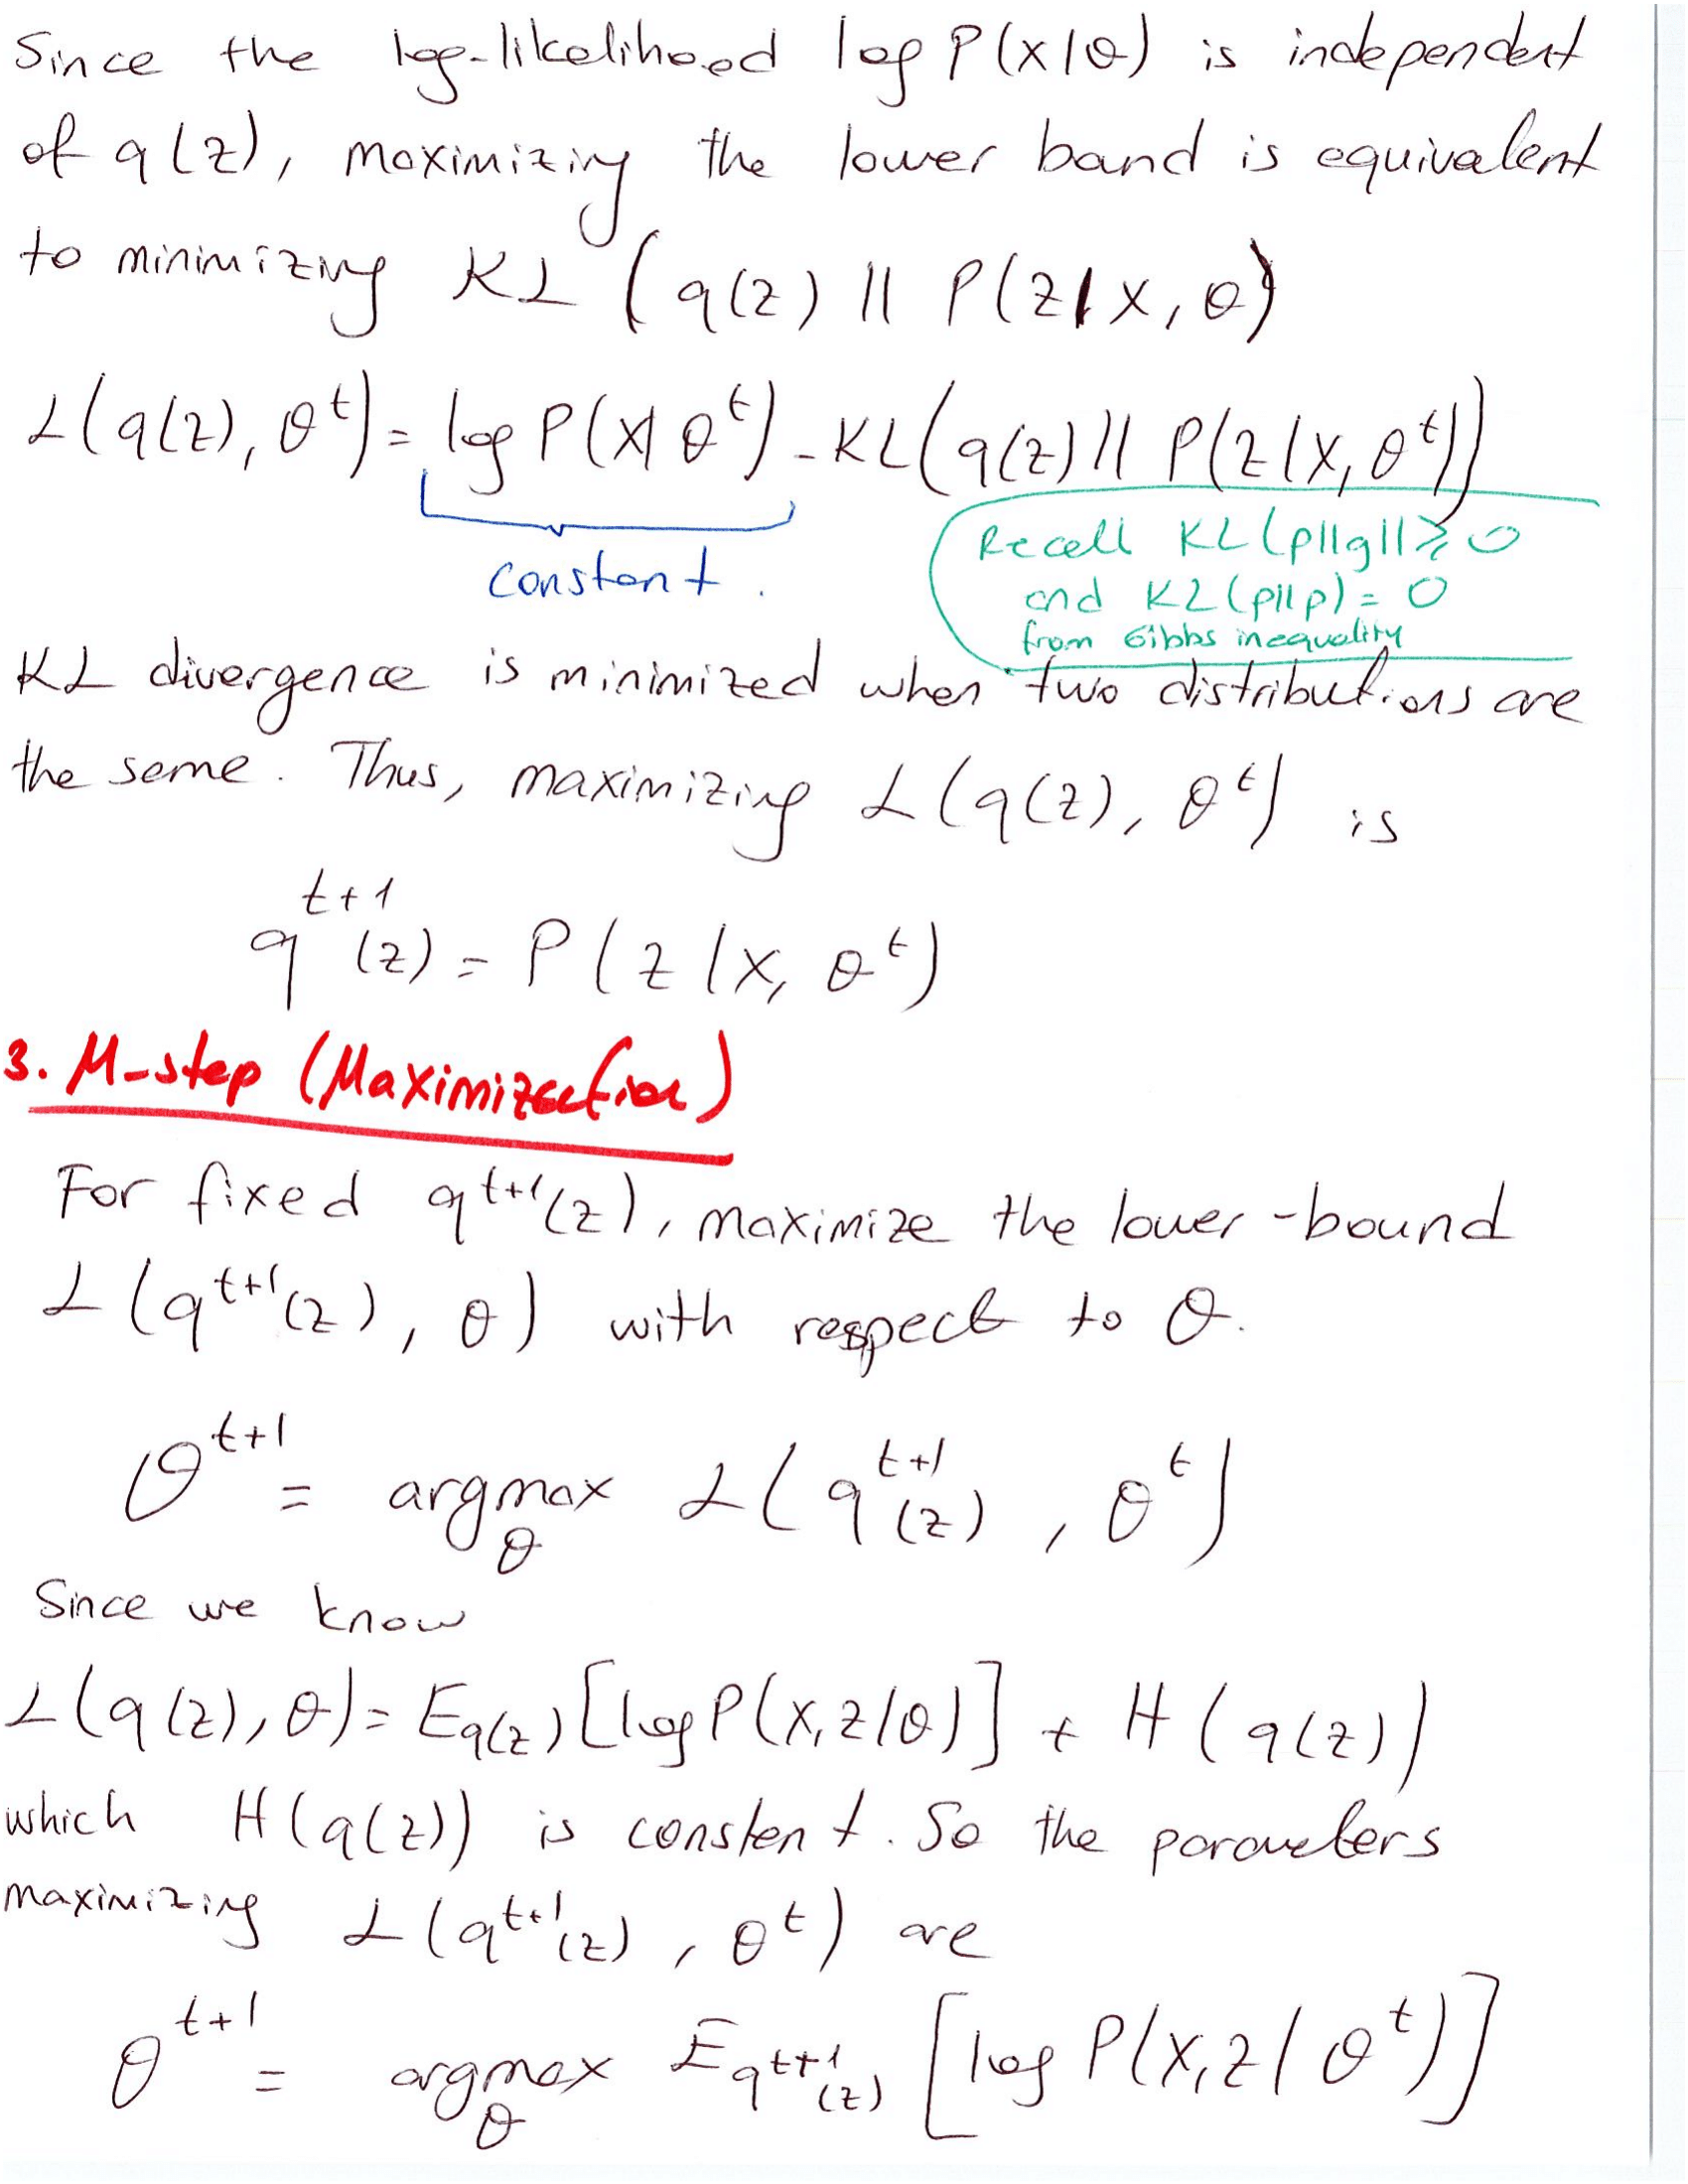 Since the log-likelihood log P(x|θ) is independent
of q(z), maximizing the lower bound is equivalent
to minimizing KL (q(z) || P(z|x, θ)
L(q(z), θ^t) = log P(x|θ^t) - KL(q(z) || P(z|x, θ^t))
constant.
Recall KL(p||q|| ≥ 0
and KL(p||p) = 0
from Gibbs inequality
KL divergence is minimized when two distributions are
the same. Thus, maximizing L(q(z), θ^t) is
q^{t+1}(z) = P(z|x, θ^t)
3. M-step (Maximization)
For fixed q^{t+1}(z), maximize the lower-bound
L(q^{t+1}(z), θ) with respect to θ.
θ^{t+1} = argmax_θ L(q^{t+1}(z), θ^t)
Since we know
L(q(z), θ) = E_{q(z)} [log P(x, z|θ)] + H(q(z))
which H(q(z)) is constant. So the parameters
maximizing L(q^{t+1}(z), θ^t) are
θ^{t+1} = argmax_θ E_{q^{t+1}(z)} [log P(x, z|θ^t)]